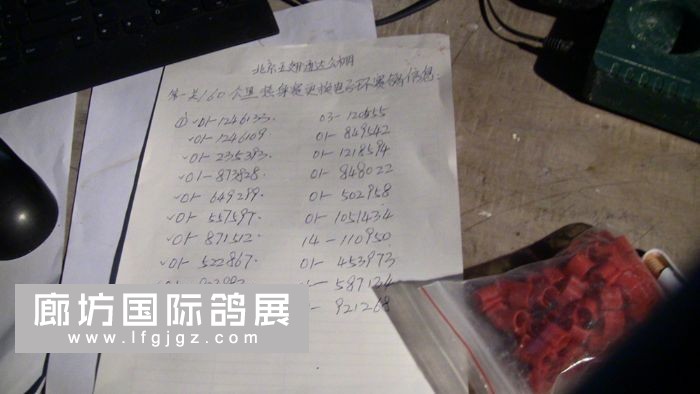 北京五翅通达公棚
第一关160公里损伤鸽更换电子环赛鸽信息:
① ✓01-1246133. 03-120655
✓01-1246109 01-849542
✓01-235393. 01-1218594
✓01-873828. 01-848022
✓01-649299. 01-502958
✓01-557597. 01-1051434
✓01-871512. 14-110950
✓01-522867. 01-453973
587124
921268
廊坊国际鸽展
www.lfgjgz.com